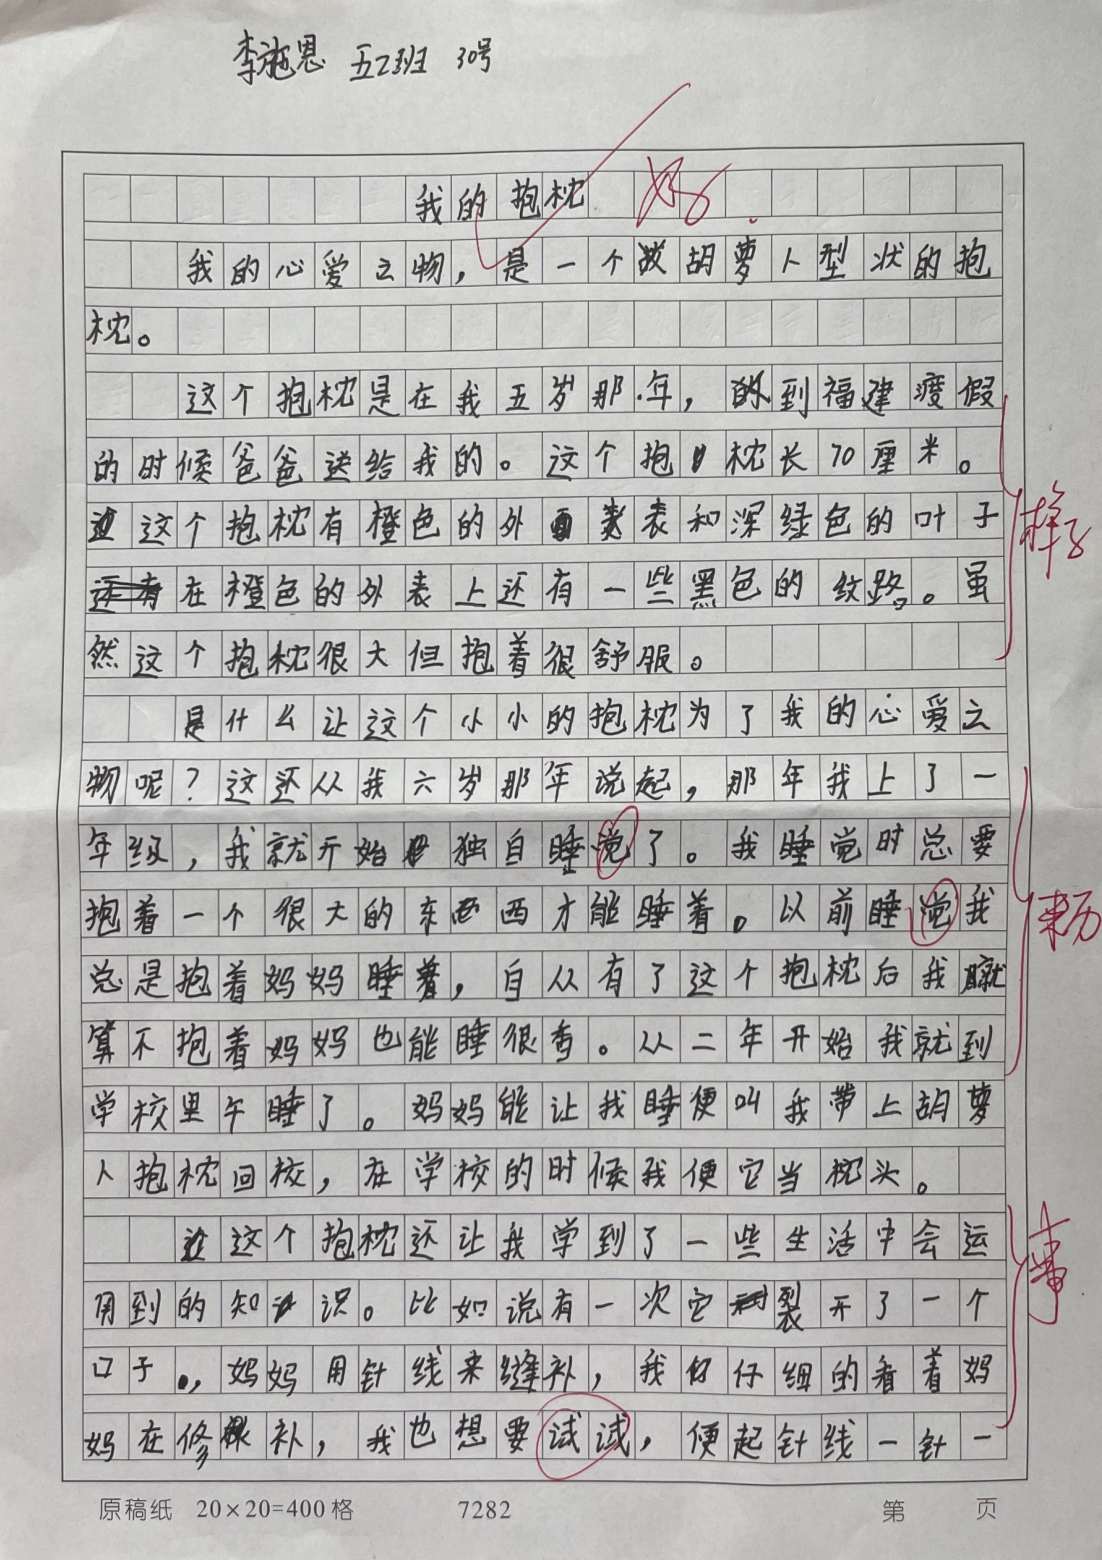 李施恩 五(2)班 30号
我的抱枕 好
我的心爱之物，是一个胡萝卜型状的抱
枕。
这个抱枕是在我五岁那年，到福建度假
的时候爸爸送给我的。这个抱枕长70厘米。
这个抱枕有橙色的外表和深绿色的叶子
在橙色的外表上还有一些黑色的纹路。虽
然这个抱枕很大但抱着很舒服。
样子
是什么让这个小小的抱枕为了我的心爱之
物呢？这还从我六岁那年说起，那年我上了一
年级，我就开始独自睡觉了。我睡觉时总要
抱着一个很大的东西才能睡着。以前睡觉我
来历
总是抱着妈妈睡着，自从有了这个抱枕后我就
算不抱着妈妈也能睡很香。从二年开始我就到
学校里午睡了。妈妈能让我睡便叫我带上胡萝
卜抱枕回校，在学校的时候我便它当枕头。
这个抱枕还让我学到了一些生活中会运
事
用到的知识。比如说有一次它裂开了一个
口子，妈妈用针线来缝补，我仔细的看着妈
妈在修补，我也想要试试，便起针线一针一
原稿纸 20×20=400格 7282 第 页